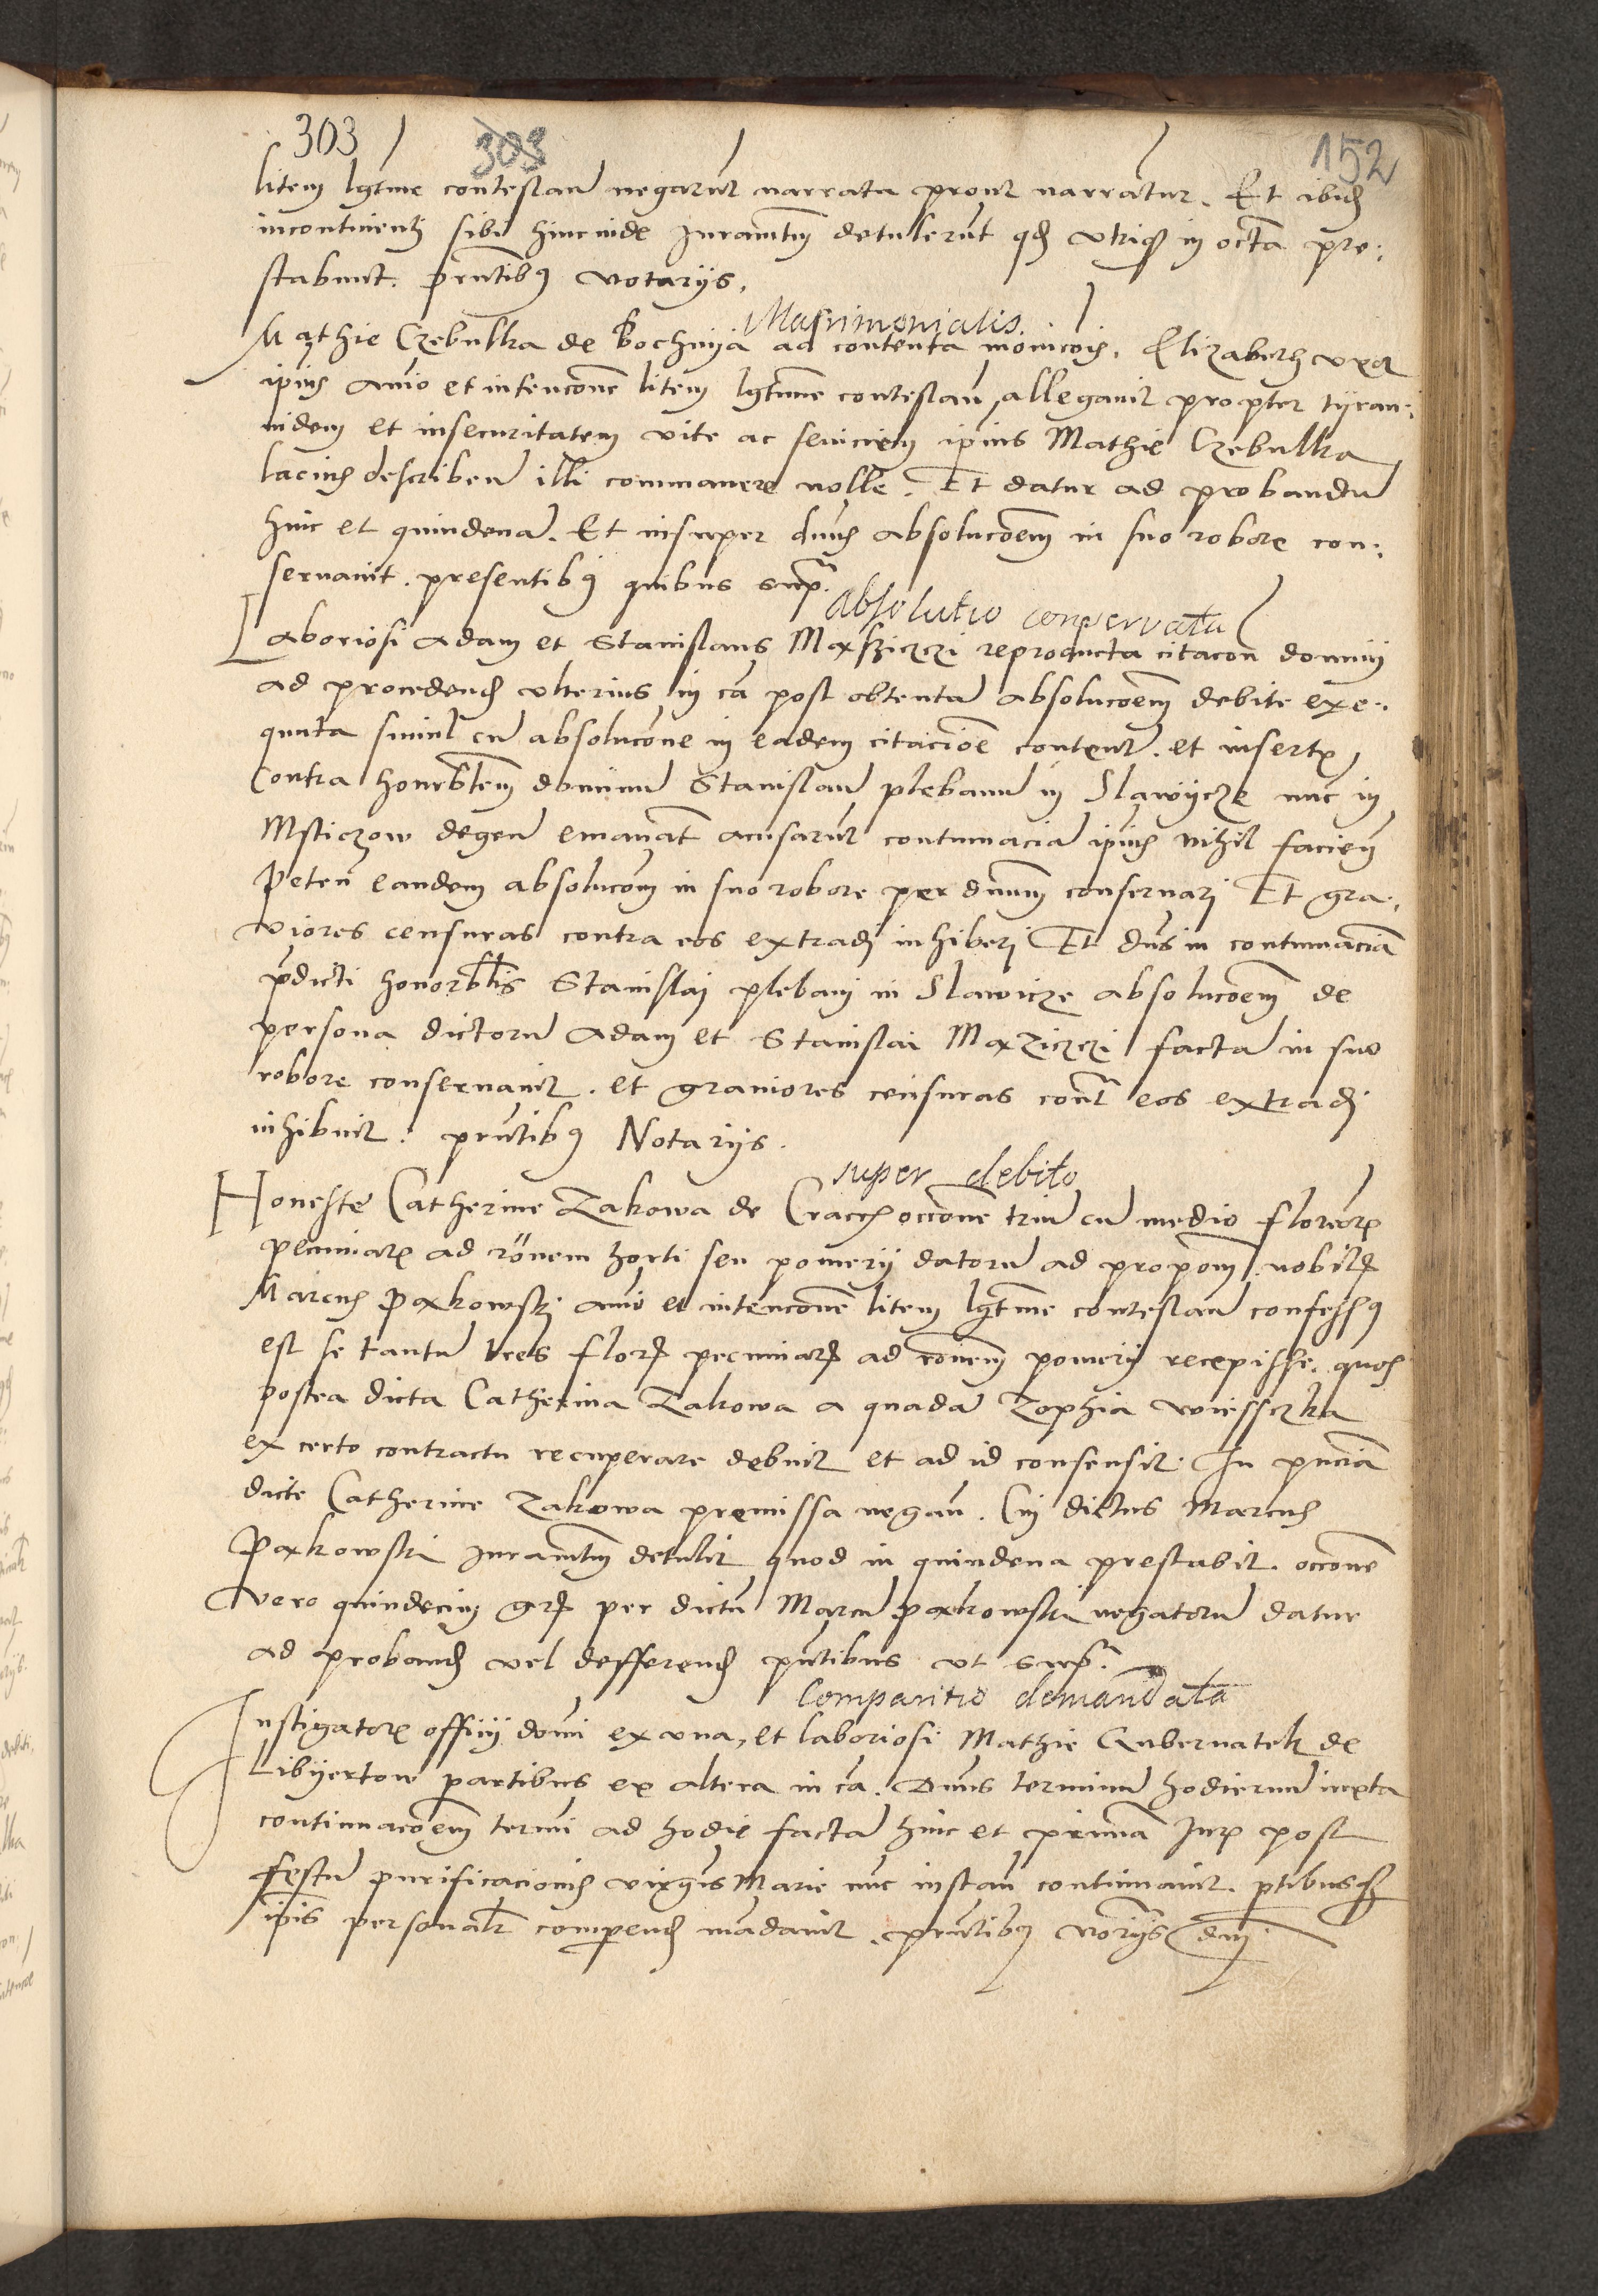 303 303 152
litem lgtime contestan negarunt narrata prout narrantur. Et ibid
incontinenti sibi hincinde Juramtm detulerunt qd utrique in octa pre:
stabunt. prntibus notarijs.
Matrimonialis.
Mathie Czebulka de Bochnija ad contenta monicois. Elizabeth uxor
ipius animo et intencone litem lgtime contestan, allegavit propter tyran:
nidem et insecuritatem vite ac seviciem ipius Mathie Czebulka
lacius describen illi commanere nolle. Et datur ad probandum
hinc et quindenam. Et insuper dnus absolucoem in suo robore con:
servavit. presentibus quibus supra.
absolutio conservata
Laboriosi Adam et Stanislaus Maxsziczczi reproducta citacon domini
ad procedend ulterius in ca post obtentam absolucoem debite exe:
quuta simul cum absolucone in eadem citacioe content. et inserta,
Contra honorblem dominum Stanislaum plebanum in Slawijcze nunc in
Msticzow degen emanat accusarunt contumaciam ipius nihil facien
Peten eandem absolucom in suo robore per dnum conservari Et gra:
viores censuras contra eos extradi inhiberi Et dnus in contumaciam
predicti honorblis Stanislai plebani in Slawicze absolucoem de
persona dictorum Adam et Stanislai Maxziczczi factam in suo
robore conservavit. et graviores censuras contra eos extradi
inhibuit. prntibus Notarijs.
super debito
Honeste Catherine Zakowa de Cracch occone trium cum medio florenorum
pecuniarum ad ronem horti seu pomerij datorum ad propom nobilis
Marcus Paxkowski animo et intencone litem lgtime contestan confessus
est se tantum tres flor pecuniar ad ronem pomerij recepisse. quos
postea dicta Catherina Zakowa a quadam Zophia Wiessczka
ex certo contractu recuperare debuit et ad id consensit. In pnciam
dicte Catherine Zakowa premissa negan. Cui dictus Marcus
Paxkowski Juramtm detulit quod in quindena prestabit. occone
Vero quindecim gr per dictum Marcum paxkowski negatorum datur
ad proband vel defferend pntibus ut supra.
Comparitio demandata
Instigatore officij domi ex una, et laboriosi Mathie Gubernatek de
Libijertow partibus ex altera in ca. Dnus terminum hodiernum iuxta
continuacoem termi ad hodie factam hinc et primam Juris post
festum purificacionis virginis Marie nunc instan continuavit. ptibusque
ipis personalr comperend mandavit. prntibus norijs dni